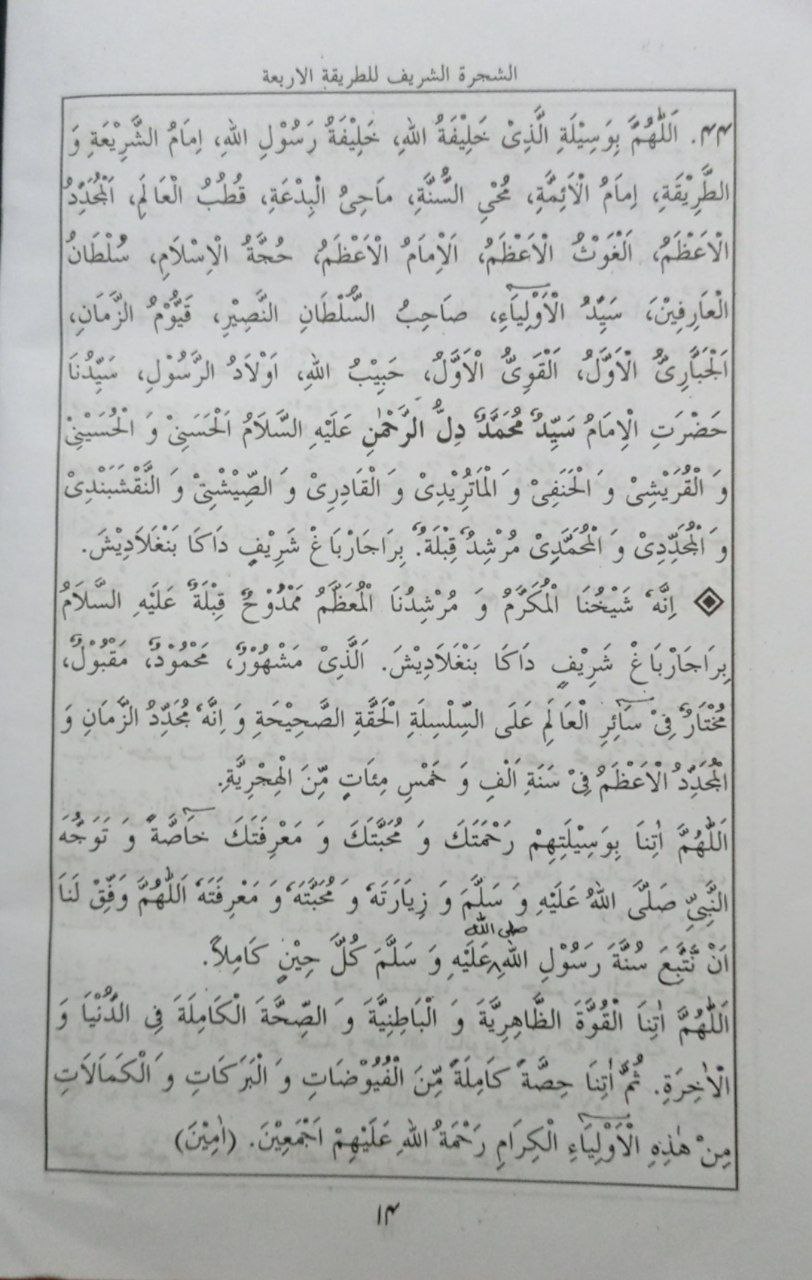 الشجرة الشريف للطريقة الاربعة
۴۴. اَللّٰهُمَّ بِوَسِيْلَةِ الَّذِىْ خَلِيْفَةُ اللهِ، خَلِيْفَةُ رَسُوْلِ اللهِ، اِمَامُ الشَّرِيْعَةِ وَ
الطَّرِيْقَةِ، اِمَامُ الْاَئِمَّةِ، مُحْىِ السُّنَّةِ، مَاحِىُ الْبِدْعَةِ، قُطُبُ الْعَالَمِ، اَلْمُجَدِّدُ
الْاَعْظَمُ، اَلْغَوْثُ الْاَعْظَمُ، اَلْاِمَامُ الْاَعْظَمُ، حُجَّةُ الْاِسْلَامِ، سُلْطَانُ
الْعَارِفِيْنَ، سَيِّدُ الْاَوْلِيَاءِ، صَاحِبُ السُّلْطَانِ النَّصِيْرِ، قَيُّوْمُ الزَّمَانِ،
اَلْجَبَّارِىُّ الْاَوَّلُ، اَلْقَوِىُّ الْاَوَّلُ، حَبِيْبُ اللهِ، اَوْلَادُ الرَّسُوْلِ، سَيِّدُنَا
حَضْرَتِ الْاِمَامُ سَيِّدٌ مُحَمَّدٌ دِلُّ الرَّحْمٰنِ عَلَيْهِ السَّلَامُ اَلْحَسَنِىْ وَ الْحُسَيْنِىْ
وَ الْقُرَيْشِىْ وَ الْحَنَفِىْ وَ الْمَاتُرِيْدِىْ وَ الْقَادِرِىْ وَ الصِّيْشْتِىْ وَ النَّقْشَبَنْدِىْ
وَ الْمُجَدِّدِىْ وَ الْمُحَمَّدِىْ مُرْشِدٌ قِبْلَةٌ. بِرَاجَارْبَاغْ شَرِيْفٍ دَاكَا بَنْغَلَادِيْشَ.
اِنَّهٗ شَيْخُنَا الْمُكَرَّمُ وَ مُرْشِدُنَا الْمُعَظَّمُ مَمْدُوْحٌ قِبْلَةٌ عَلَيْهِ السَّلَامُ
بِرَاجَارْبَاغْ شَرِيْفٍ دَاكَا بَنْغَلَادِيْشَ. اَلَّذِىْ مَشْهُوْرٌ، مَحْمُوْدٌ، مَقْبُوْلٌ،
مُخْتَارٌ فِىْ سَائِرِ الْعَالَمِ عَلَى السِّلْسِلَةِ الْحَقَّةِ الصَّحِيْحَةِ وَ اِنَّهٗ مُجَدِّدُ الزَّمَانِ وَ
الْمُجَدِّدُ الْاَعْظَمُ فِىْ سَنَةِ اَلْفِ وَ خَمْسِ مِئَاتٍ مِّنَ الْهِجْرِيَّةِ.
اَللّٰهُمَّ اٰتِنَا بِوَسِيْلَتِهِمْ رَحْمَتَكَ وَ مُحَبَّتَكَ وَ مَعْرِفَتَكَ خَاصَّةً وَ تَوَجُّهَ
النَّبِيِّ صَلَّى اللهُ عَلَيْهِ وَ سَلَّمَ وَ زِيَارَتَهٗ وَ مُحَبَّتَهٗ وَ مَعْرِفَتَهٗ اَللّٰهُمَّ وَفِّقْ لَنَا
اَنْ نَّتَّبِعَ سُنَّةَ رَسُوْلِ اللهِ صلى الله عَلَيْهِ وَ سَلَّمَ كُلَّ حِيْنٍ كَامِلاً.
اَللّٰهُمَّ اٰتِنَا الْقُوَّةَ الظَّاهِرِيَّةَ وَ الْبَاطِنِيَّةَ وَ الصِّحَّةَ الْكَامِلَةَ فِى الدُّنْيَا وَ
الْاٰخِرَةِ. ثُمَّ اٰتِنَا حِصَّةً كَامِلَةً مِّنَ الْفُيُوْضَاتِ وَ الْبَرَكَاتِ وَ الْكَمَالَاتِ
مِنْ هٰذِهِ الْاَوْلِيَاءِ الْكِرَامِ رَحْمَةُ اللهِ عَلَيْهِمْ اَجْمَعِيْنَ. (اٰمِيْنَ)
۱۴